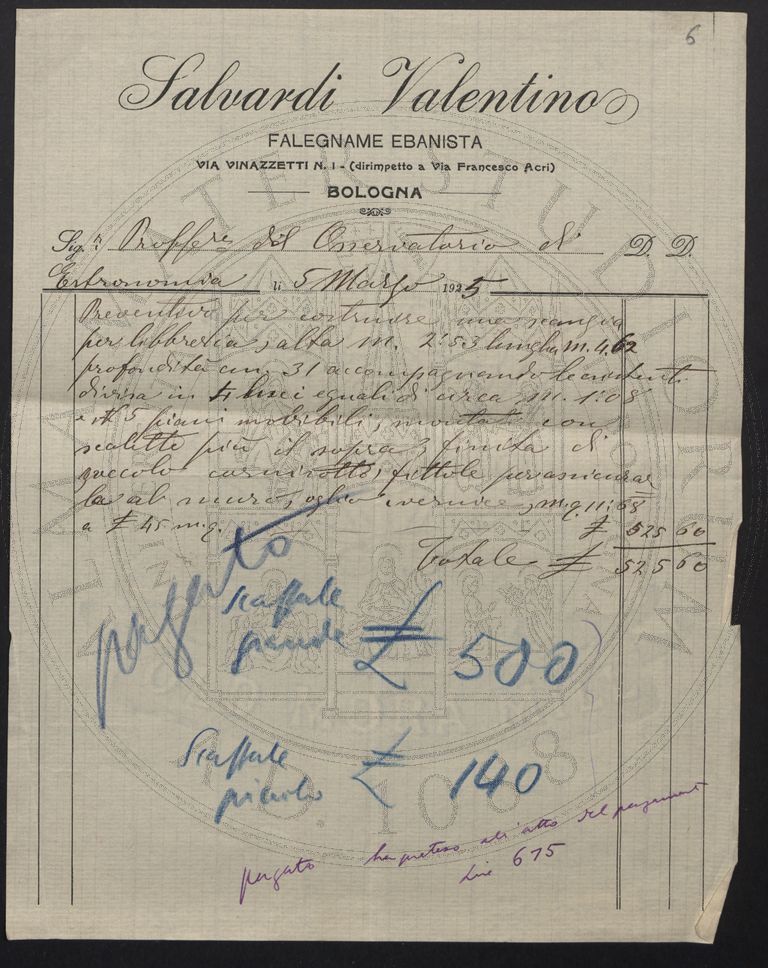 6
Salvardi Valentino
FALEGNAME EBANISTA
VIA VINAZZETTI N. 1 - (dirimpetto a Via Francesco Acri)
BOLOGNA
Sig.r Proffere del Oservatorio di D. D.
Estronomia li 5 Marzo 1925
Preventivo per costruire una scangia
per libbreria, alta m. 2:53 lungha m. 4.62
profondità cm. 31 accompagnando le esistenti
divisa in 4 luci eguali di circa m. 1:08
5 piani mobibili, montati con
scalette più il sopra, finita di
piccolo cornisotto, fittole per asicurar
la al muro, oglio vernice, m.q. 11:68
a £ 45 m.q. £ 525 60
Totale £ 525 60
pagato
scaffale
grande £ 500
Scaffale
piccolo £ 140
pagato ha preteso all'atto del pagamento
Lire 675
ALMA MATER STUDIORUM
A.D. 1088